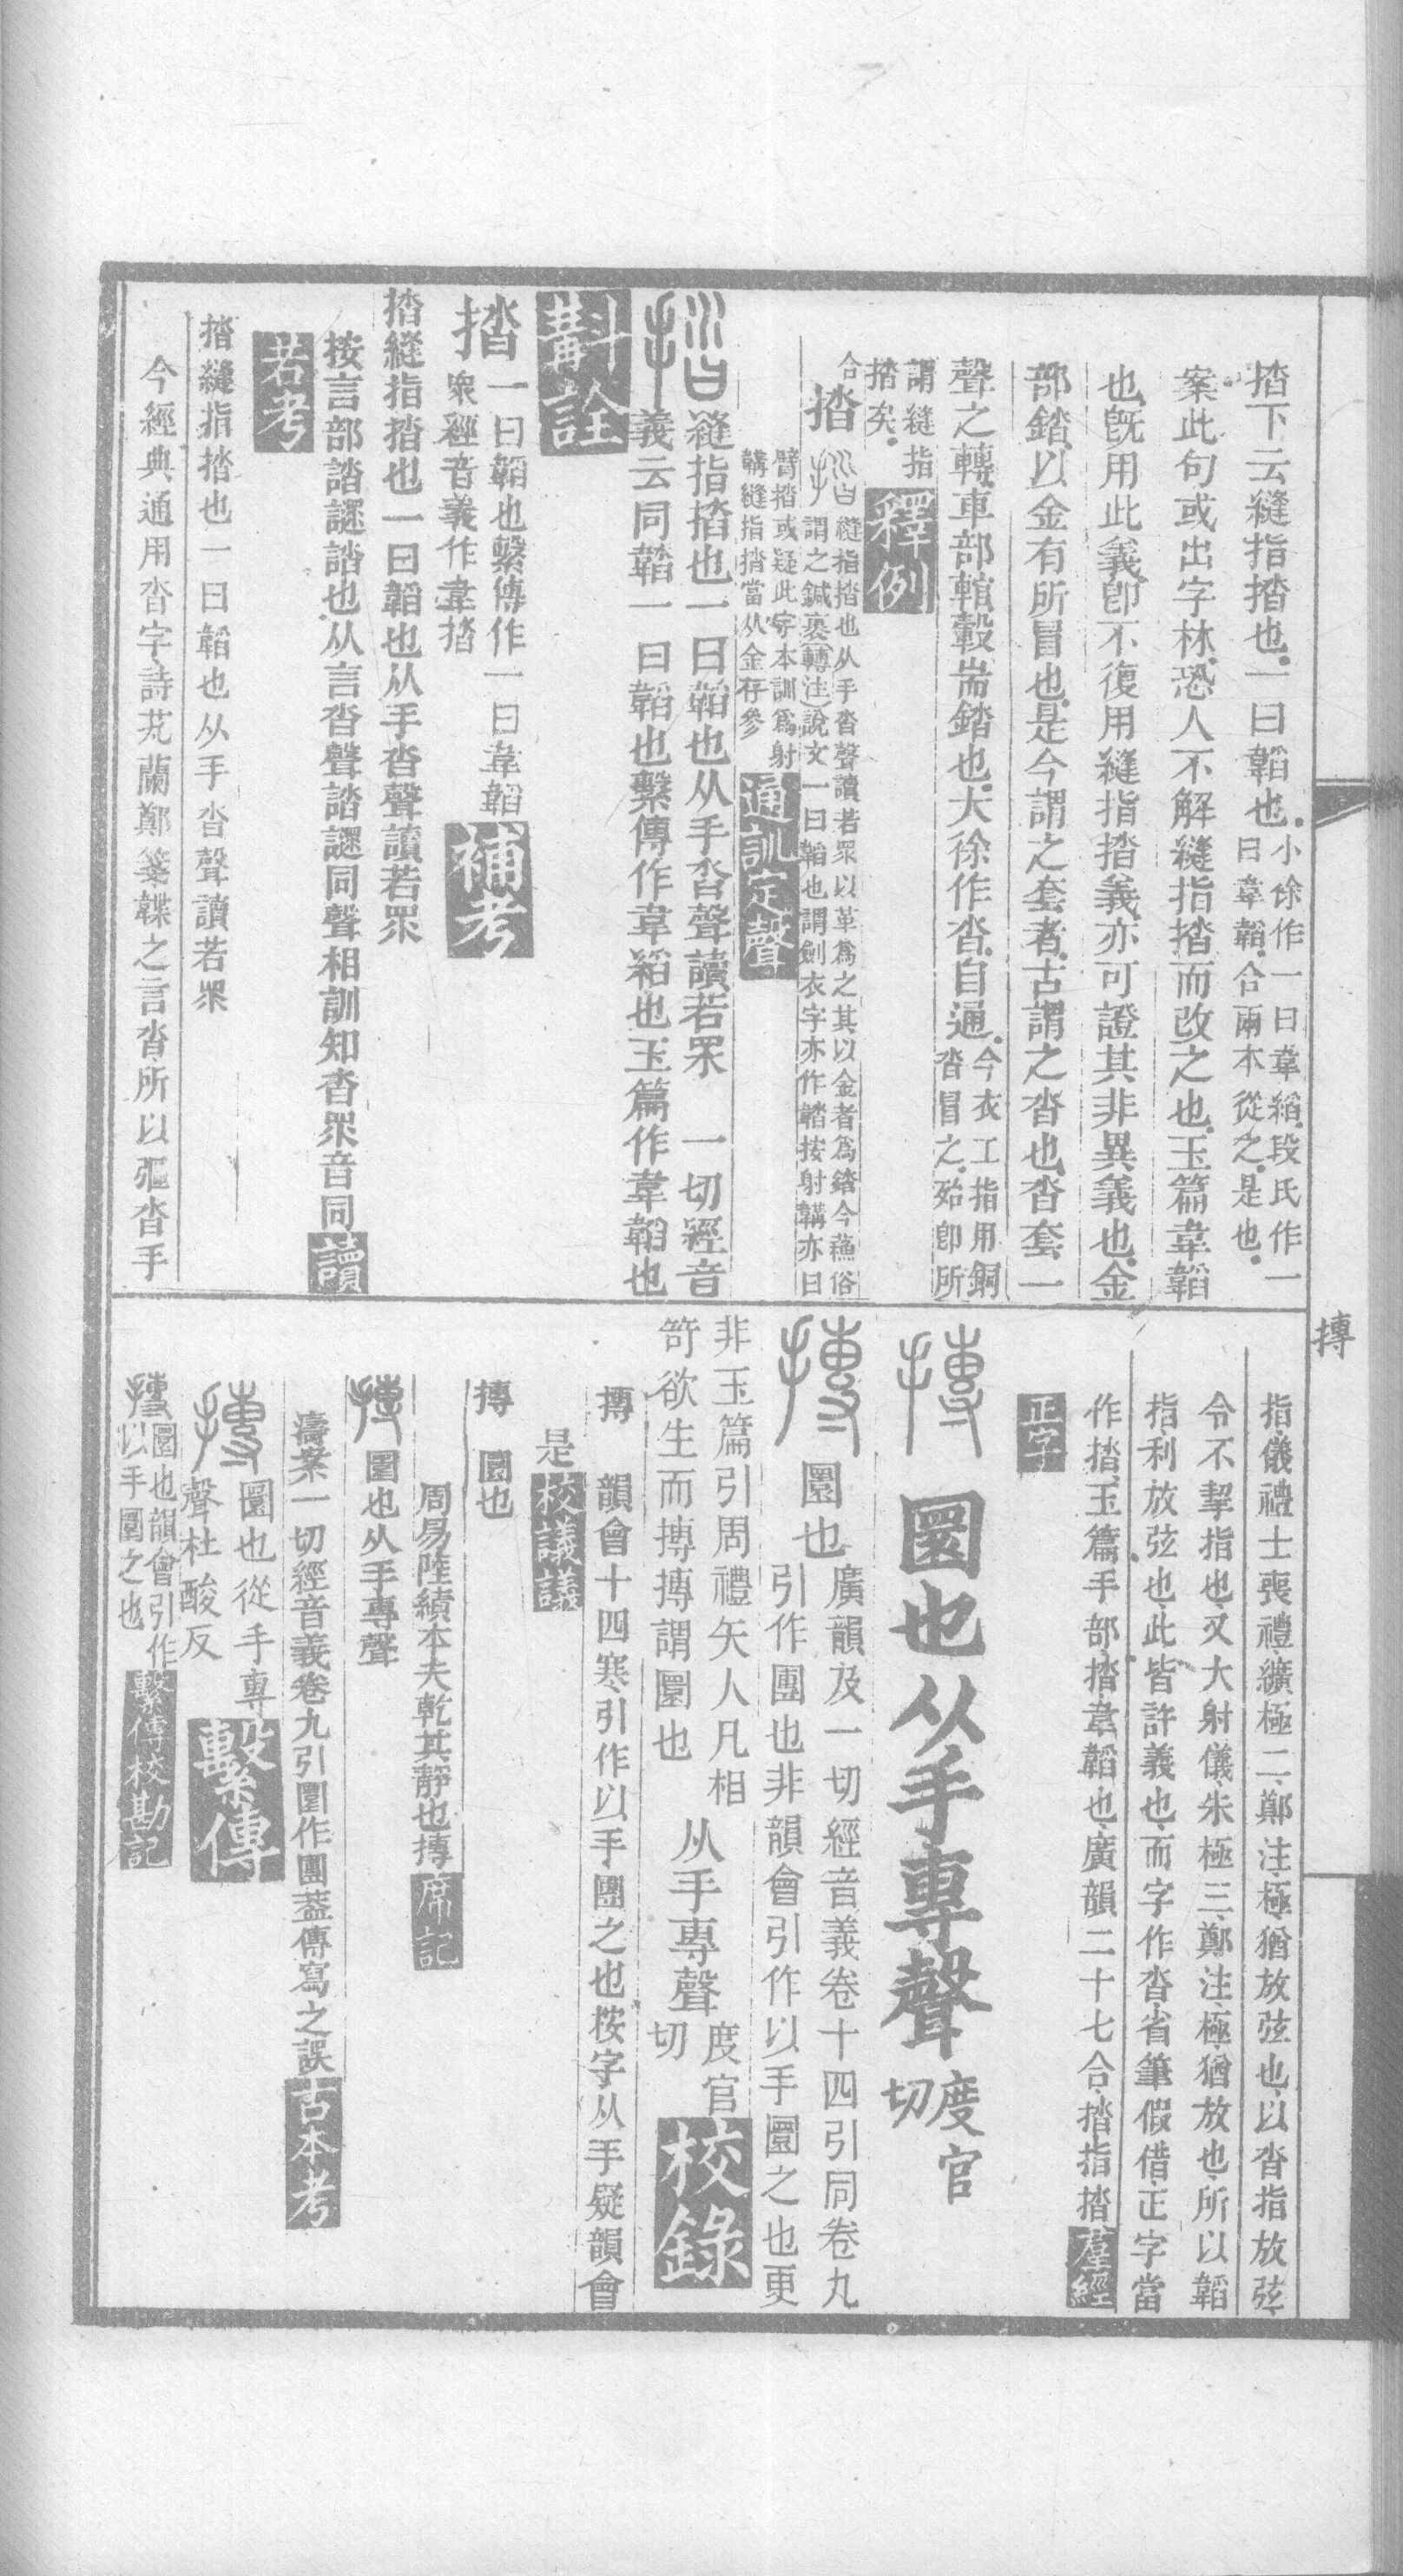 揸下云縫指揸也一曰韜也小徐作一曰韋縚段氏作一
曰韋韜合兩本從之是也
案此句或出字林恐人不解縫指揸而改之也玉篇韋韜
也旣用此義卽不復用縫指揸義亦可證其非異義也金
部錔以金有所冒也是今謂之套者古謂之沓也沓套一
聲之轉車部輨轂耑錔也大徐作沓自通今衣工指用銅
沓冒之殆卽所
謂縫指
揸矣釋例
合
揸縫指揸也从手沓聲讀若眔以革爲之其以金者爲錔今蘇俗
謂之鍼裹（轉注）說文一曰韜也謂劍衣字亦作韜按射韝亦曰
臂揸或疑此字本訓爲射
韝縫指揸當从金存參通訓定聲
縫指揸也一曰韜也从手沓聲讀若眔　一切經音
義云同韜一曰韜也繫傳作韋縚也玉篇作韋韜也
斠詮
揸一曰韜也繫傳作一曰韋韜
衆經音義作韋揸補考
揸縫指揸也一曰韜也从手沓聲讀若眔
按言部誻謎誻也从言沓聲誻謎同聲相訓知沓眔音同讀
若考
揸縫指揸也一曰韜也从手沓聲讀若眔
今經典通用沓字詩芄蘭鄭箋韘之言沓所以彄沓手
摶
指儀禮士喪禮纊極二鄭注極猶放弦也以沓指放弦
令不挈指也又大射儀朱極三鄭注極猶放也所以韜
指利放弦也此皆許義也而字作沓省筆假借正字當
作揸玉篇手部揸韋韜也廣韻二十七合揸指揸羣經
正字
摶圜也从手專聲度官
切
摶圜也廣韻及一切經音義卷十四引同卷九
引作團也非韻會引作以手圜之也更
非玉篇引周禮矢人凡相
笴欲生而摶摶謂圜也从手專聲度官
切校錄
摶　韻會十四寒引作以手團之也按字从手疑韻會
是校議議
摶　圜也
周易陸績本夫乾其靜也摶席記
摶圜也从手專聲
濤案一切經音義卷九引圜作團葢傳寫之誤古本考
摶圜也從手專
聲杜酸反繫傳
摶圜也韻會引作
以手圜之也繫傳校勘記